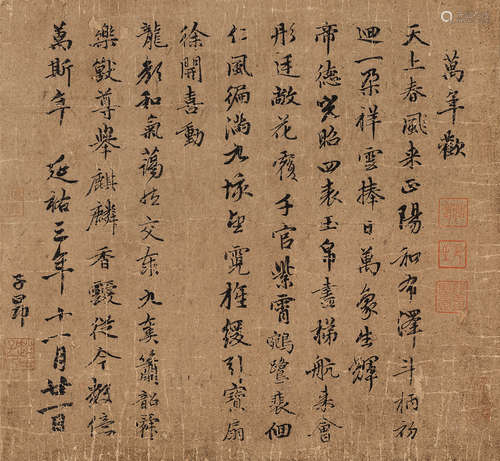 萬年歡
天上春風来正陽和布澤斗柄初
迴一朵祥雲捧日萬象生輝
帝德光昭四表玉帛盡梯航来會
彤廷敞花覆千官紫霄鵷鷺裴佪
仁風徧滿九垓望霓旌緩引寶扇
徐開喜動
龍顏和氣藹然交泰九奏簫韶舜
樂獸尊舉麒麟香靉從今數億
萬斯年 延祐三年十一月廿一日
子昂